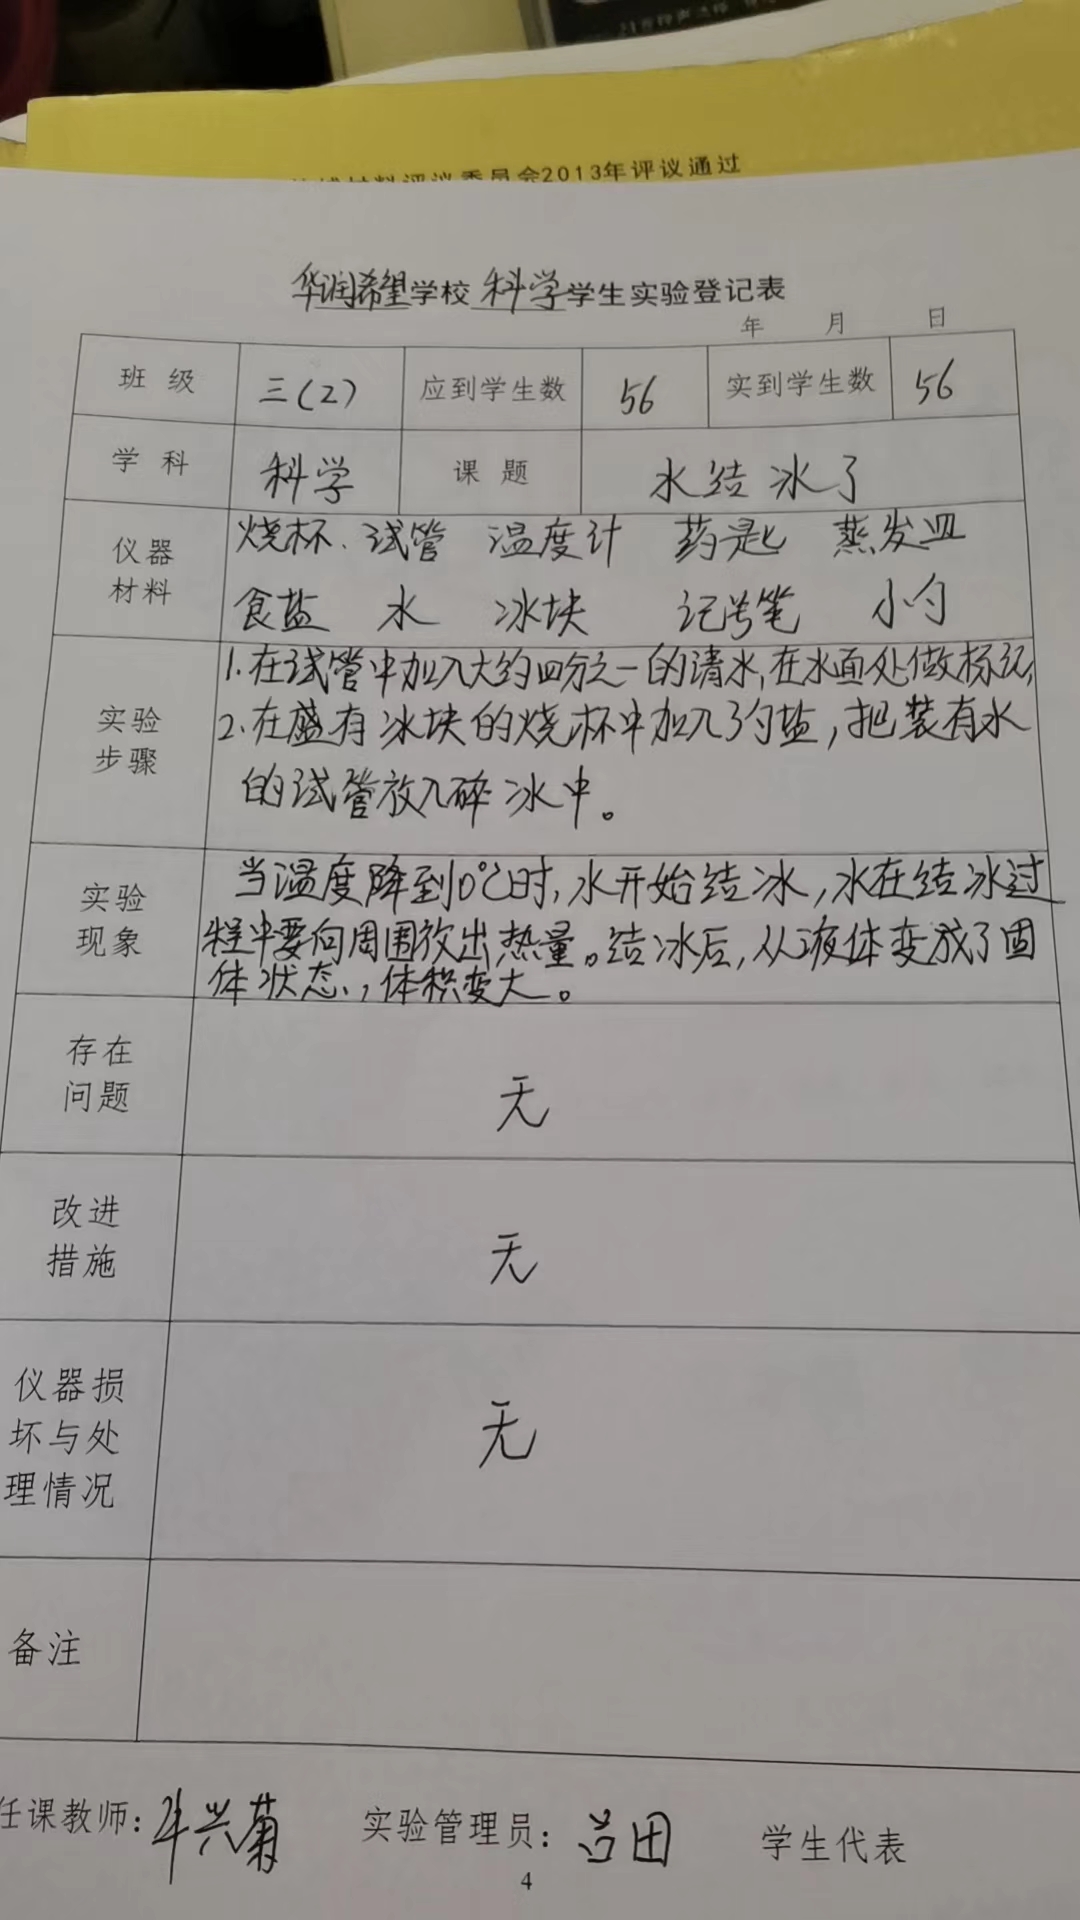 评议委员会2013年评议通过
华润希望学校 科学学生实验登记表
年 月 日
班级 三(2) 应到学生数 56 实到学生数 56
学科 科学 课题 水结冰了
仪器材料
烧杯、试管 温度计 药匙 蒸发皿
食盐 水 冰块 记号笔 小勺
实验步骤
1.在试管中加入大约四分之一的清水,在水面处做标记,
2.在盛有冰块的烧杯中加入3勺盐,把装有水
的试管放入碎冰中。
实验现象
当温度降到0℃时,水开始结冰,水在结冰过
程中要向周围放出热量。结冰后,从液体变成了固
体状态,体积变大。
存在问题
无
改进措施
无
仪器损坏与处理情况
无
备注
任课教师:牛兴菊 实验管理员:吕田 学生代表
4